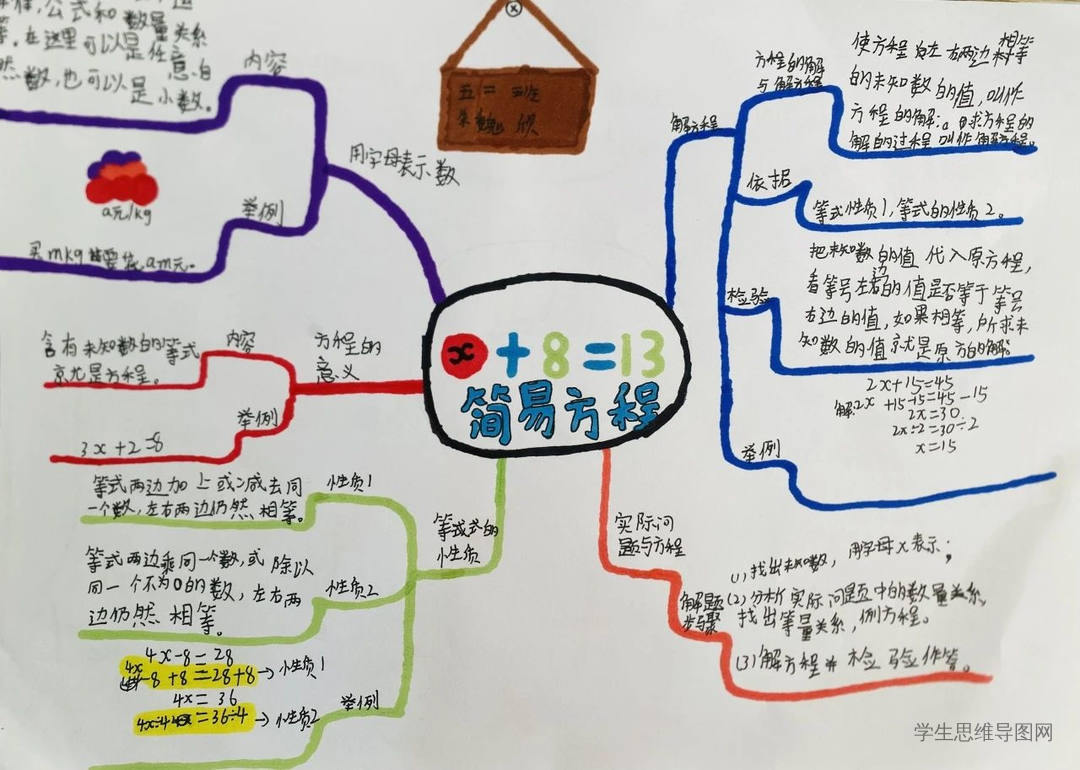 公式和数量关系
等。在这里可以是任意自
然数,也可以是小数。
内容
用字母表示数
举例
a元/kg
买mkg需要花am元。
五二班
含有未知数的等式
就是方程。
内容
方程的
意义
举例
3x+2=8
等式两边加上或减去同
一个数,左右两边仍然相等。
性质1
等式两边乘同一个数,或除以
同一个不为0的数,左右两
边仍然相等。
性质2
等式的
性质
4x-8=28
4x
-8+8=28+8→性质1
4x=36
4x÷4=36÷4→性质2
举例
x+8=13
简易方程
解方程
方程的解
与解方程
使方程左右两边相等
的未知数的值,叫作
方程的解。求方程的
解的过程叫作解方程。
依据
等式性质1,等式的性质2。
检验
把未知数的值代入原方程,
看等号左边的值是否等于等号
右边的值,如果相等,所求未
知数的值就是原方的解。
举例
2x+15=45
解:2x+15-15=45-15
2x=30
2x÷2=30÷2
x=15
实际问
题与方程
解题
步骤
(1)找出未知数,用字母x表示;
(2)分析实际问题中的数量关系,
找出等量关系,例方程。
(3)解方程并检验作答。
学生思维导图网